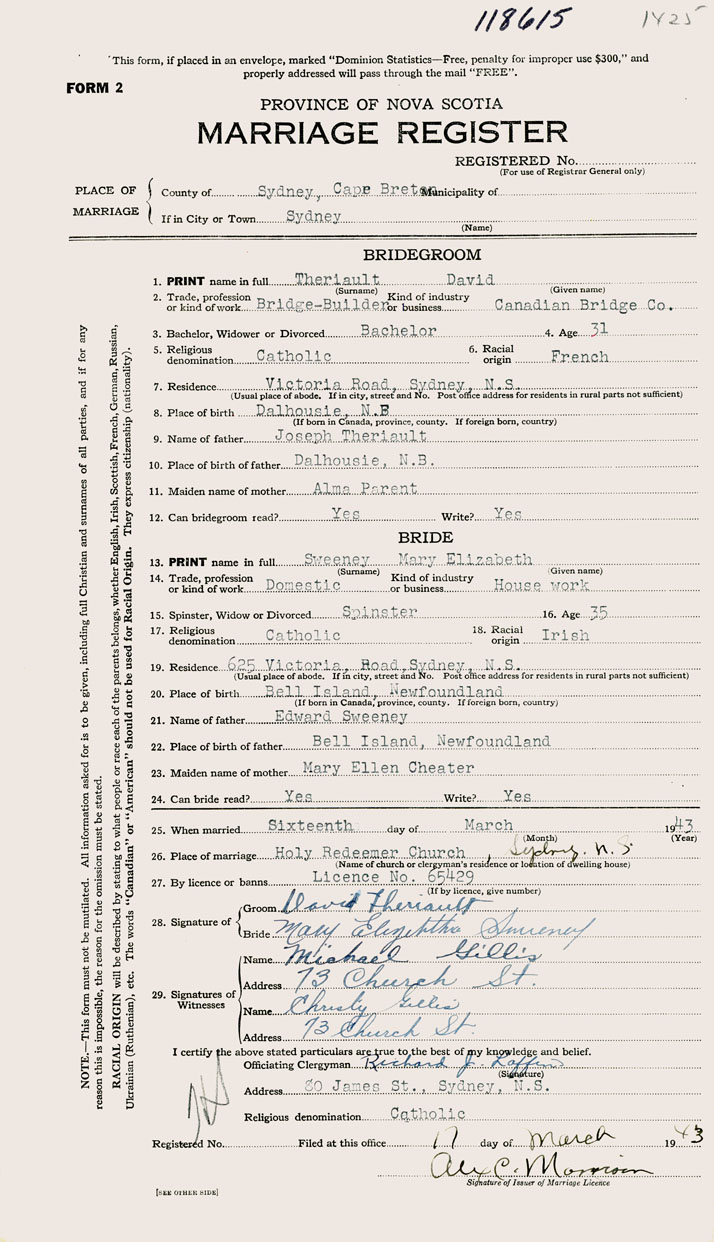 118615 1425
"This form, if placed in an envelope, marked "Dominion Statistics—Free, penalty for improper use $300," and
properly addressed will pass through the mail "FREE".
FORM 2
PROVINCE OF NOVA SCOTIA
MARRIAGE REGISTER
REGISTERED No.
(For use of Registrar General only)
PLACE OF MARRIAGE
County of Sydney, Cape Breton Municipality of
If in City or Town Sydney
(Name)
BRIDEGROOM
1. PRINT name in full Theriault David
(Surname) (Given name)
2. Trade, profession or kind of work Bridge-Builder Kind of industry or business Canadian Bridge Co.
3. Bachelor, Widower or Divorced Bachelor 4. Age 31
5. Religious denomination Catholic 6. Racial origin French
7. Residence Victoria Road, Sydney, N.S.
(Usual place of abode. If in city, street and No. Post office address for residents in rural parts not sufficient)
8. Place of birth Dalhousie, N.B
(If born in Canada, province, county. If foreign born, country)
9. Name of father Joseph Theriault
10. Place of birth of father Dalhousie, N.B.
11. Maiden name of mother Alma Parent
12. Can bridegroom read? Yes Write? Yes
BRIDE
13. PRINT name in full Sweeney Mary Elizabeth
(Surname) (Given name)
14. Trade, profession or kind of work Domestic Kind of industry or business House work
15. Spinster, Widow or Divorced Spinster 16. Age 35
17. Religious denomination Catholic 18. Racial origin Irish
19. Residence 625 Victoria, Road, Sydney, N.S.
(Usual place of abode. If in city, street and No. Post office address for residents in rural parts not sufficient)
20. Place of birth Bell Island, Newfoundland
(If born in Canada, province, county. If foreign born, country)
21. Name of father Edward Sweeney
22. Place of birth of father Bell Island, Newfoundland
23. Maiden name of mother Mary Ellen Cheater
24. Can bride read? Yes Write? Yes
25. When married Sixteenth day of March 1943
(Month) (Year)
26. Place of marriage Holy Redeemer Church, Sydney, N.S.
(Name of church or clergyman's residence or location of dwelling house)
27. By licence or banns Licence No. 65429
(If by licence, give number)
28. Signature of
Groom David Theriault
Bride Mary Elizabeth Sweeney
29. Signatures of Witnesses
Name Michael Gillis
Address 73 Church St.
Name Christy Gillis
Address 73 Church St.
I certify the above stated particulars are true to the best of my knowledge and belief.
Officiating Clergyman Richard J.
(Signature)
Address 80 James St., Sydney, N.S.
Religious denomination Catholic
Registered No. Filed at this office 17 day of March 1943
Alex C. Morrison
Signature of Issuer of Marriage Licence
[SEE OTHER SIDE]
NOTE.—This form must not be mutilated. All information asked for is to be given, including full Christian and surnames of all parties, and if for any
reason this is impossible, the reason for the omission must be stated.
RACIAL ORIGIN will be described by stating to what people or race each of the parents belongs, whether English, Irish, Scottish, French, German, Russian,
Ukrainian (Ruthenian), etc. The words "Canadian" or "American" should not be used for Racial Origin. They express citizenship (nationality).